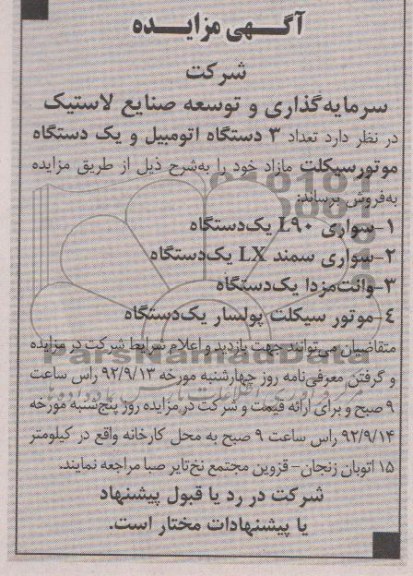 آگهی مزایده
شرکت
سرمایه‌گذاری و توسعه صنایع لاستیک
در نظر دارد تعداد ۳ دستگاه اتومبیل و یک دستگاه
موتورسیکلت مازاد خود را به‌شرح ذیل از طریق مزایده
به‌فروش برساند:
۱-سواری L۹۰ یک‌دستگاه
۲-سواری سمند LX یک‌دستگاه
۳-وانت‌مزدا یک‌دستگاه
٤-موتور سیکلت پولسار یک‌دستگاه
متقاضیان می‌توانند جهت بازدید و اعلام شرایط شرکت در مزایده
و گرفتن معرفی‌نامه روز چهارشنبه مورخه ۹۲/۹/۱۳ راس ساعت
۹ صبح و برای ارائه قیمت و شرکت در مزایده روز پنج‌شنبه مورخه
۹۲/۹/۱۴ راس ساعت ۹ صبح به محل کارخانه واقع در کیلومتر
۱۵ اتوبان زنجان-قزوین مجتمع نخ‌تایر صبا مراجعه نمایند.
شرکت در رد یا قبول پیشنهاد
یا پیشنهادات مختار است.
ParsNamadData